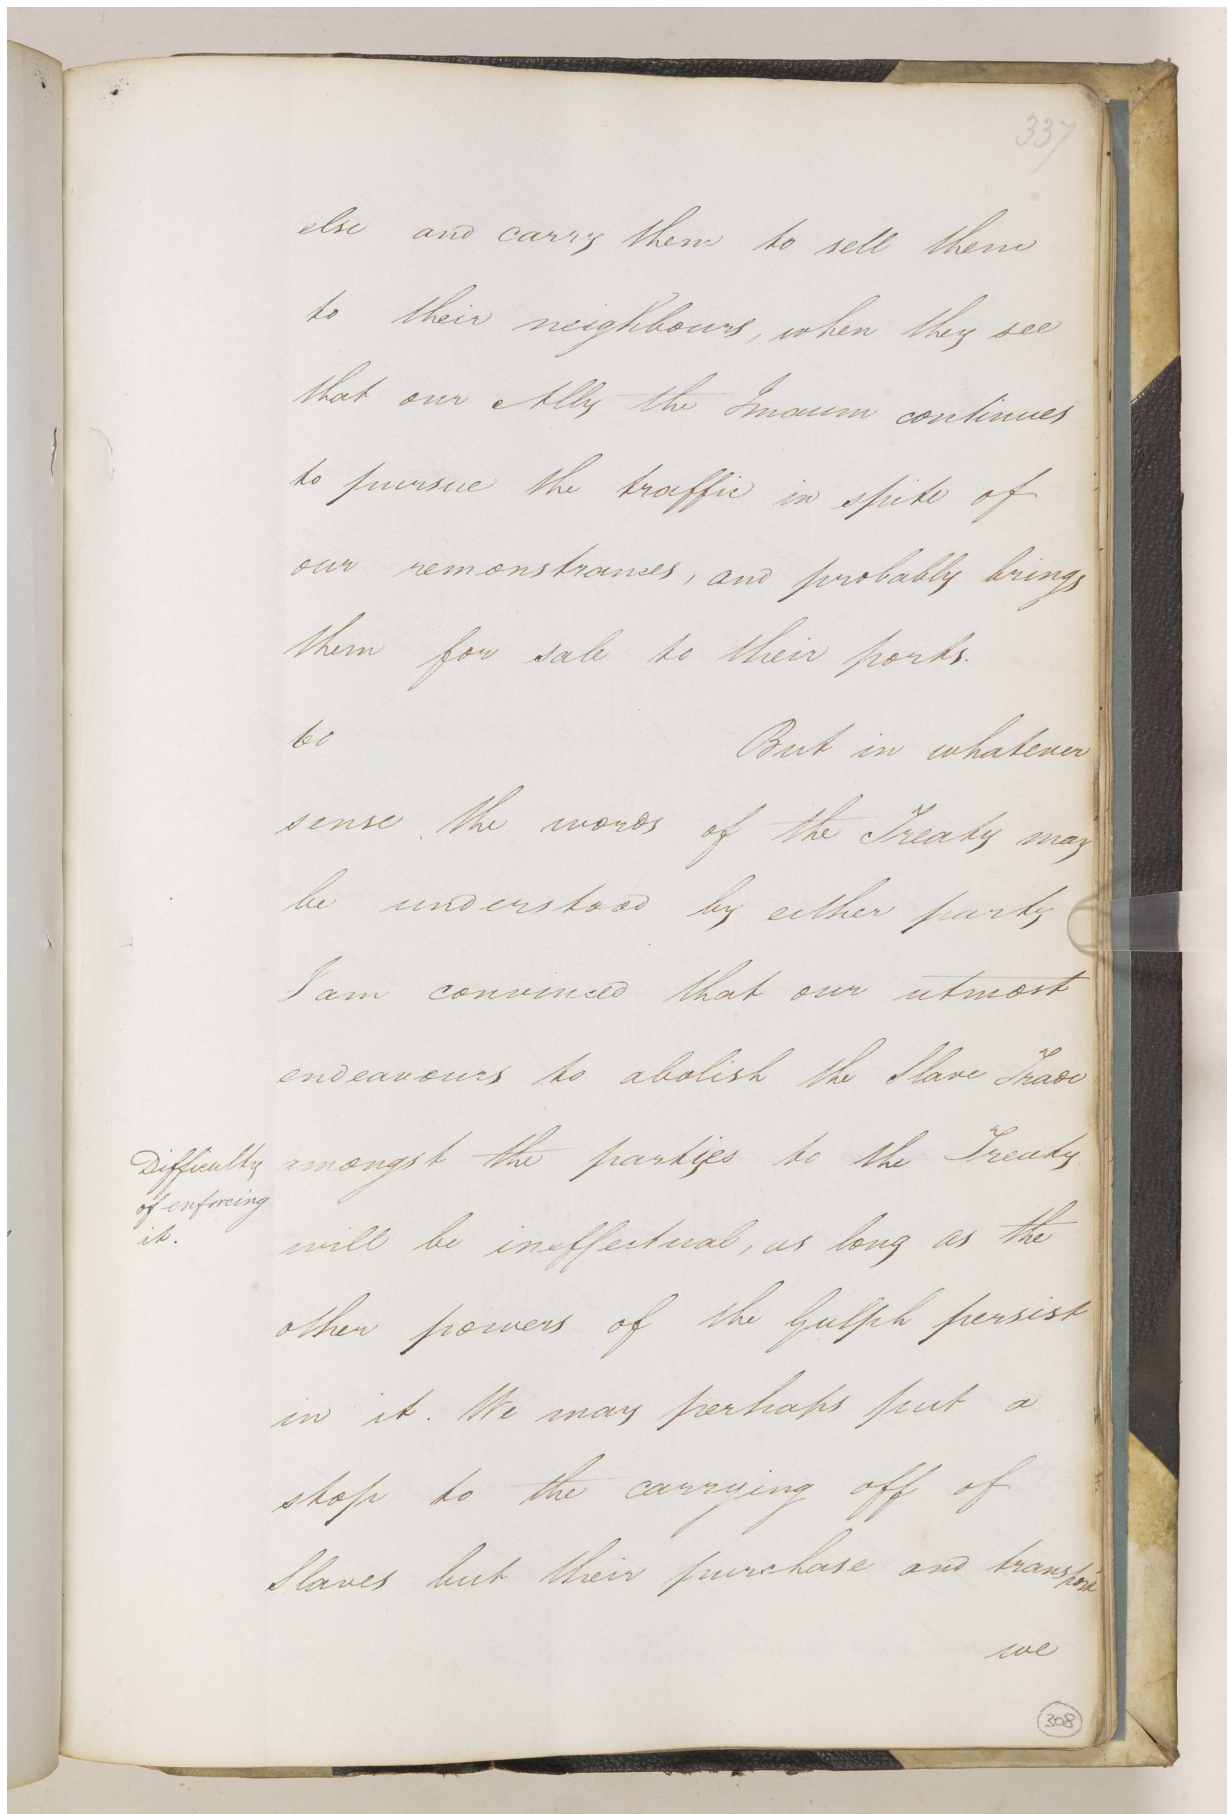 337
else and carry them to sell them
to their neighbours, when they see
that our Ally the Imaum continues
to pursue the traffic in spite of
our remonstrances, and probably brings
them for sale to their ports.
But in whatever
sense the words of the Treaty may
be understood by either party
I am convinced that our utmost
endeavours to abolish the Slave Trade
Difficulty
of enforcing
it.
amongst the parties to the Treaty
will be ineffectual, as long as the
other powers of the Gulph persist
in it. We may perhaps put a
stop to the carrying off of
Slaves but their purchase and transport
we
308